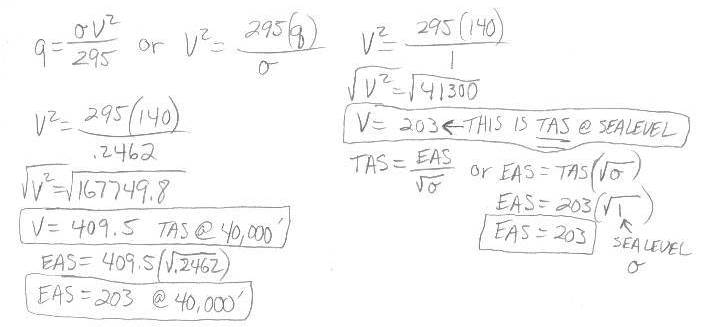 q = σV²/295 or V² = 295(q)/σ
V² = 295(140)/.2462
√V² = √167749.8
V = 409.5 TAS @ 40,000'
EAS = 409.5(√.2462)
EAS = 203 @ 40,000'
V² = 295(140)/1
√V² = √41300
V = 203 ← THIS IS TAS @ SEALEVEL
TAS = EAS/√σ or EAS = TAS(√σ)
EAS = 203(√1)
EAS = 203
SEALEVEL
σ